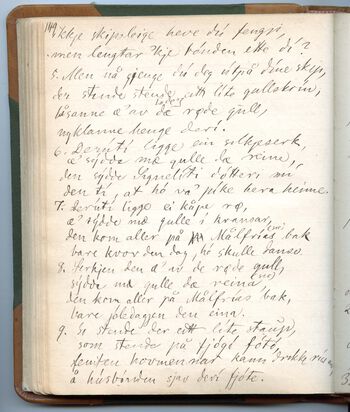 144
Ikkje skipsleige heve du fengji,
men lengtar 'kje bonden ette di?
5. Men nå gjenge du deg utpå dine skip,
der stende eitt lite gullskrin,
låsanne æ av dæ røde gull,
nyklanne henge deri.
6. Deruti ligge ein silkjeserk,
æ sydde mæ gulle dæ reine,
den sydde Signeliti dotteri mi
den ti, at ho va pike hera heime.
7. Deruti ligge ei kåpe rø,
æ sydde mæ gulle i kransar,
den kom aller på Målfrias bak
bare kvor den dag, ho skulle danse.
8. Serkjen den æ av dæ røde gull,
sydde mæ gulle dæ reina,
den kom aller på Målfrias bak,
bare joledagen den eina.
9. Ei stende der eitt lite staup,
som stende på fjogo føto,
femten hovmennar kann drikke
å husbonden sjav deri fjote.